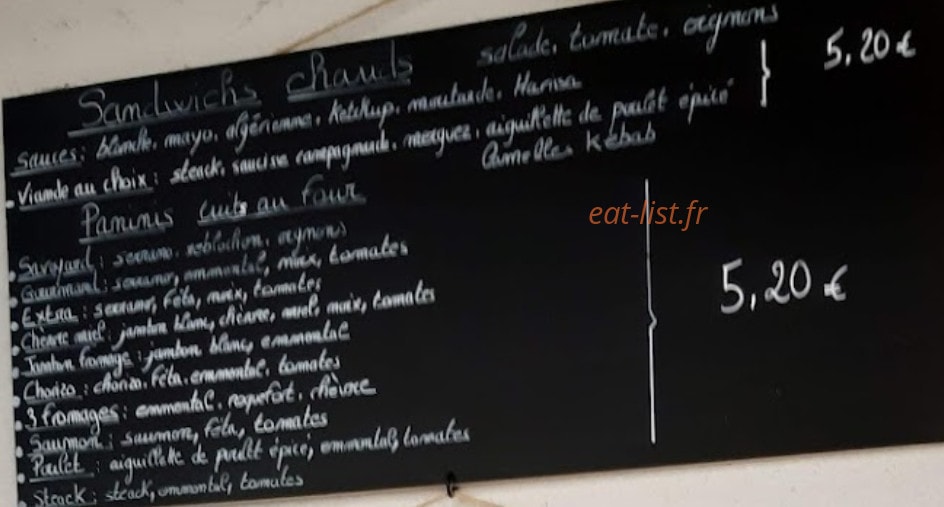 Sandwichs chauds salade, tomate, oignons
Sauces: blanche, mayo, algérienne, Ketchup, moutarde, Harissa
5,20€
• Viande au choix: steack, saucisse campagnarde, merguez, aiguillette de poulet épicé
Lamelles kébab
Paninis cuits au four
eat-list.fr
• Savoyard: serrano, reblochon, oignons
• Gourmand: serrano, emmental, noix, tomates
• Extra: serrano, féta, noix, tomates
• Chèvre miel: jambon blanc, chèvre, miel, noix, tomates
5,20€
• Jambon fromage: jambon blanc, emmental
• Chorizo: chorizo, féta, emmental, tomates
• 3 fromages: emmental, roquefort, chèvre
• Saumon: saumon, féta, tomates
• Poulet: aiguillette de poulet épicé, emmental, tomates
• Steack: steack, emmental, tomates